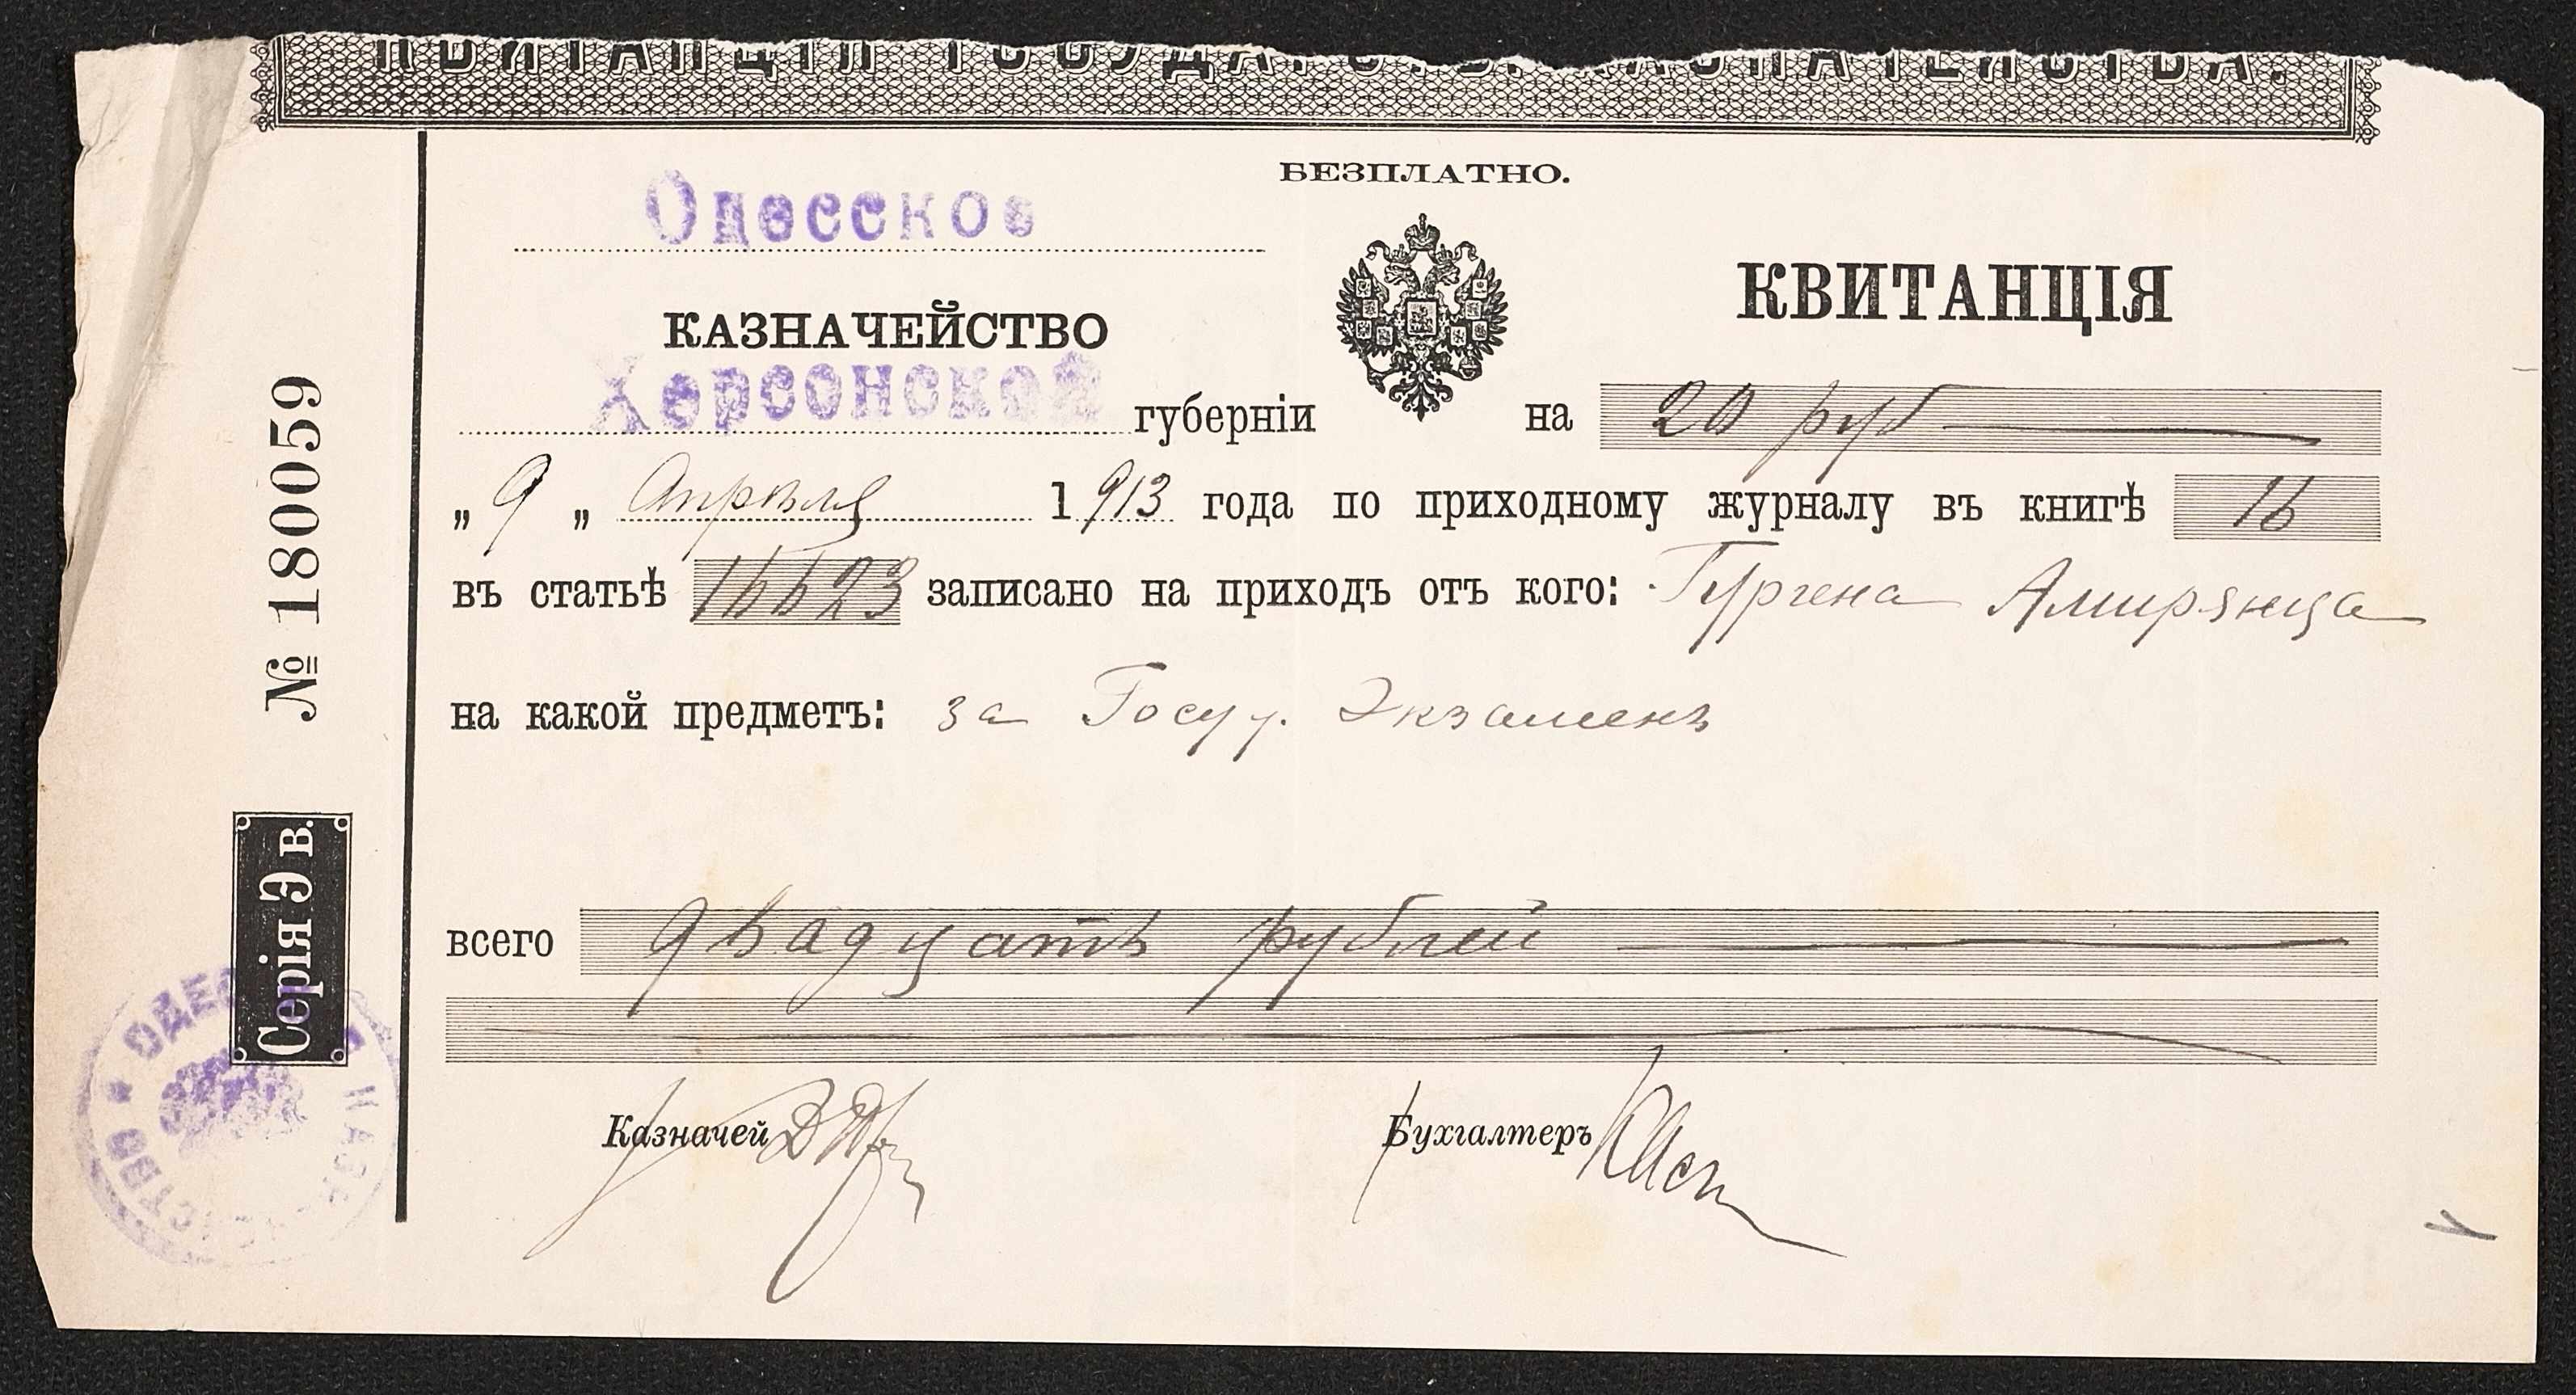 КВИТАНЦІЯ ГОСУДАРСТВ. КАЗНАЧЕЙСТВА.
БЕЗПЛАТНО.
Одесское
КАЗНАЧЕЙСТВО
КВИТАНЦІЯ
Херсонской губерніи на 20 руб
„ 9 „ Апрѣля 1913 года по приходному журналу въ книгѣ 16
въ статьѣ 16623 записано на приходъ отъ кого: Гургена Амирянца
на какой предметъ: за Госуд. Экзаменъ
всего двадцать рублей
Казначей
Бухгалтеръ
№ 180059
Серія Э в.
ОДЕССКОЕ КАЗНАЧЕЙСТВО